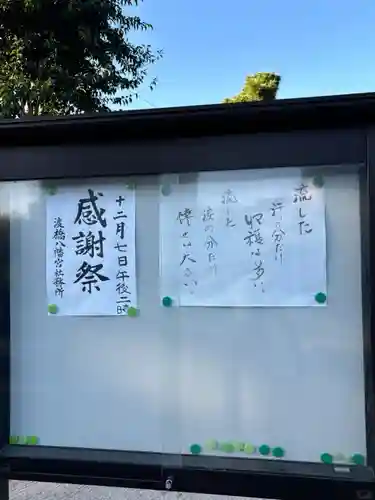 流した
汗の分だけ
収穫は多い
流した
涙の分だけ
幸せは大きい
十二月七日午後二時
感謝祭
八幡宮社務所